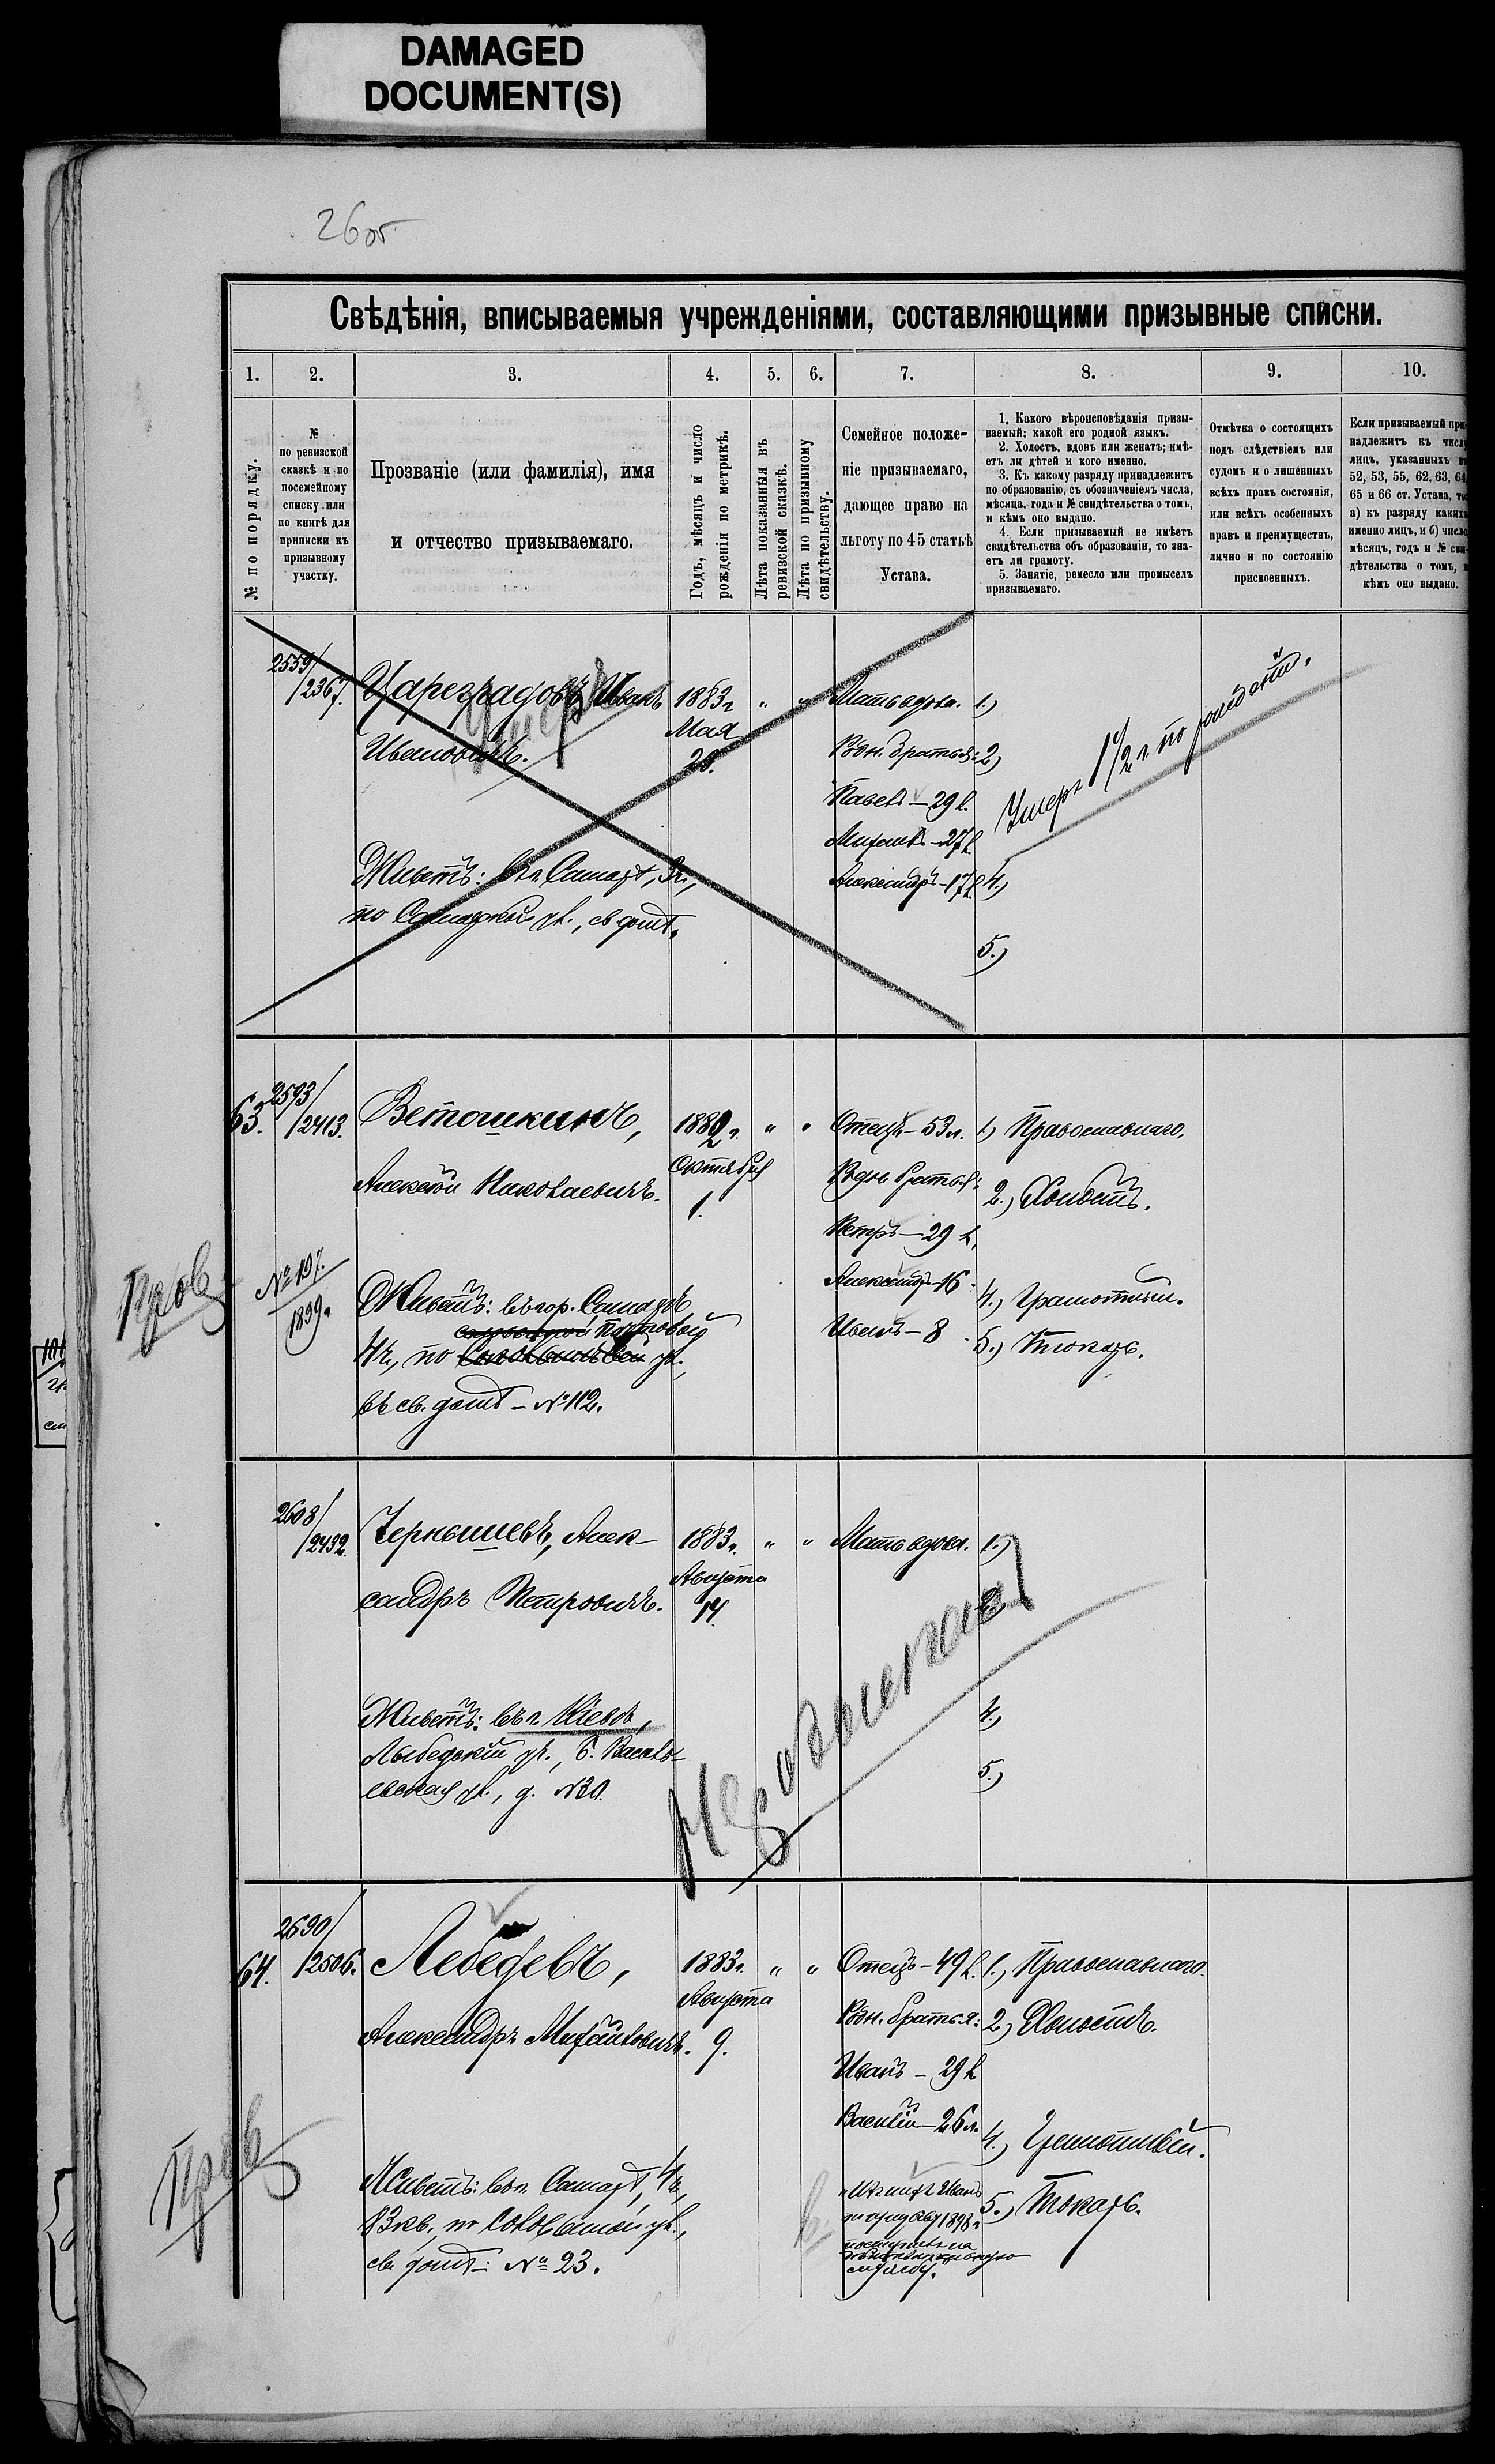 DAMAGED
DOCUMENT(S)
26 об
Свѣдѣнія, вписываемыя учрежденіями, составляющими призывные списки.
1.
2.
3.
4.
5.
6.
7.
8.
9.
10.
№ по порядку.
№
по ревизской
сказкѣ и по
посемейному
списку или
по книгѣ для
приписки къ
призывному
участку.
Прозваніе (или фамилія), имя
и отчество призываемаго.
Годъ, мѣсяцъ и число
рожденія по метрикѣ.
Лѣта показанныя въ
ревизской сказкѣ.
Лѣта по призывному
свидѣтельству.
Семейное положе-
ніе призываемаго,
дающее право на
льготу по 45 статьѣ
Устава.
1. Какого вѣроисповѣданія призы-
ваемый; какой его родной языкъ.
2. Холостъ, вдовъ или женатъ; имѣ-
етъ ли дѣтей и кого именно.
3. Къ какому разряду принадлежитъ
по образованію, съ обозначеніемъ числа,
мѣсяца, года и № свидѣтельства о томъ,
и кѣмъ оно выдано.
4. Если призываемый не имѣетъ
свидѣтельства объ образованіи, то зна-
етъ ли грамоту.
5. Занятіе, ремесло или промыселъ
призываемаго.
Отмѣтка о состоящихъ
подъ слѣдствіемъ или
судомъ и о лишенныхъ
всѣхъ правъ состоянія,
или всѣхъ особенныхъ
правъ и преимуществъ,
лично и по состоянію
присвоенныхъ.
Если призываемый при-
надлежитъ къ числу
лицъ, указанныхъ
52, 53, 55, 62, 63, 64,
65 и 66 ст. Устава, то
а) къ разряду какихъ
именно лицъ, и б) число
мѣсяцъ, годъ и № сви-
дѣтельства о томъ,
кѣмъ оно выдано.
2559/
/2367.
Цареградовъ, Иванъ
Ивановичъ.
Живетъ: въ г. Самарѣ, 3 ч.,
по Самарской ул., св. домѣ.
1883 г.
Мая
20.
" "
Мать вдова.
Родн. братья:
Павелъ — 29 л.
Михаилъ — 27 л.
Александръ — 17 л.
1.)
2.)
4.)
5.)
Умеръ 1 1/2 г. по рожденіи.
63.
2593/
/2413.
№ 197.
1899 г.
Пров
Ветошкинъ,
Алексѣй Николаевичъ.
Живетъ: въ гор. Самарѣ
Почтовой
4 ч., по ул.,
въ св. домѣ — № 112.
1882 г.
Октября
1.
" "
Отецъ — 53 л.
Родн. братья:
Петръ — 29 л.
Александръ — 16
Иванъ — 8
1.) Православнаго.
2.) Холостъ.
4.) Грамотный.
5.) Токарь.
2608/
/2432.
Чернышевъ, Алек-
сандръ Петровичъ.
Живетъ: въ г. Кіевѣ,
Лыбедскій уч., Б. Василь-
евская ул., д. № 30.
1883 г.
Августа
14.
" "
Мать вдова.
1.)
2.)
4.)
5.)
64.
2690/
/2506.
Пров
Лебедевъ,
Александръ Михайловичъ.
Живетъ: въ г. Самарѣ, 4 ч.,
св. домѣ: № 23.
1883 г.
Августа
9.
" "
Отецъ — 49 л.
Родн. братья:
Иванъ — 29 л.
Василій — 26 л.
Изъ нихъ Иванъ
по призыву 1898 г.
поступилъ на
службу.
1.) Православнаго.
2.) Холостъ.
4.) Грамотный.
5.) Токарь.